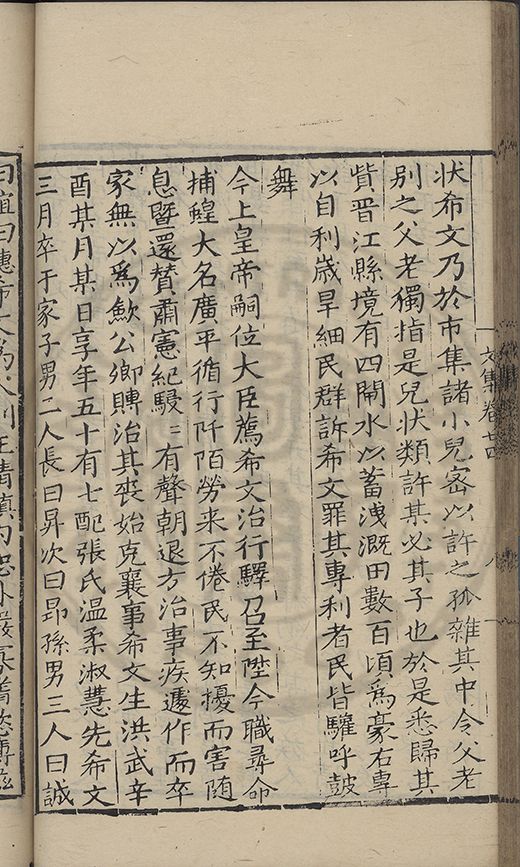 状希文乃於市集諸小兒密以許之孤雜其中令父老
别之父老獨指是兒状類許某必其子也於是悉歸其
貲晋江縣境有四閘水以蓄洩溉田數百頃爲豪右專
以自利歲旱細民群訴希文罪其專利者民皆驩呼鼓
舞
今上皇帝嗣位大臣薦希文治行驛召至陞今職尋命
捕蝗大名廣平循行阡陌勞来不倦民不知擾而害随
息暨還賛肅憲紀駸〻有聲朝退方治事疾遽作而卒
家無以爲歛公卿賻治其喪始克襄事希文生洪武辛
酉某月某日享年五十有七配張氏温柔淑慧先希文
三月卒于家子男二人長曰昇次曰昂孫男三人曰誠
文集卷廿四
八